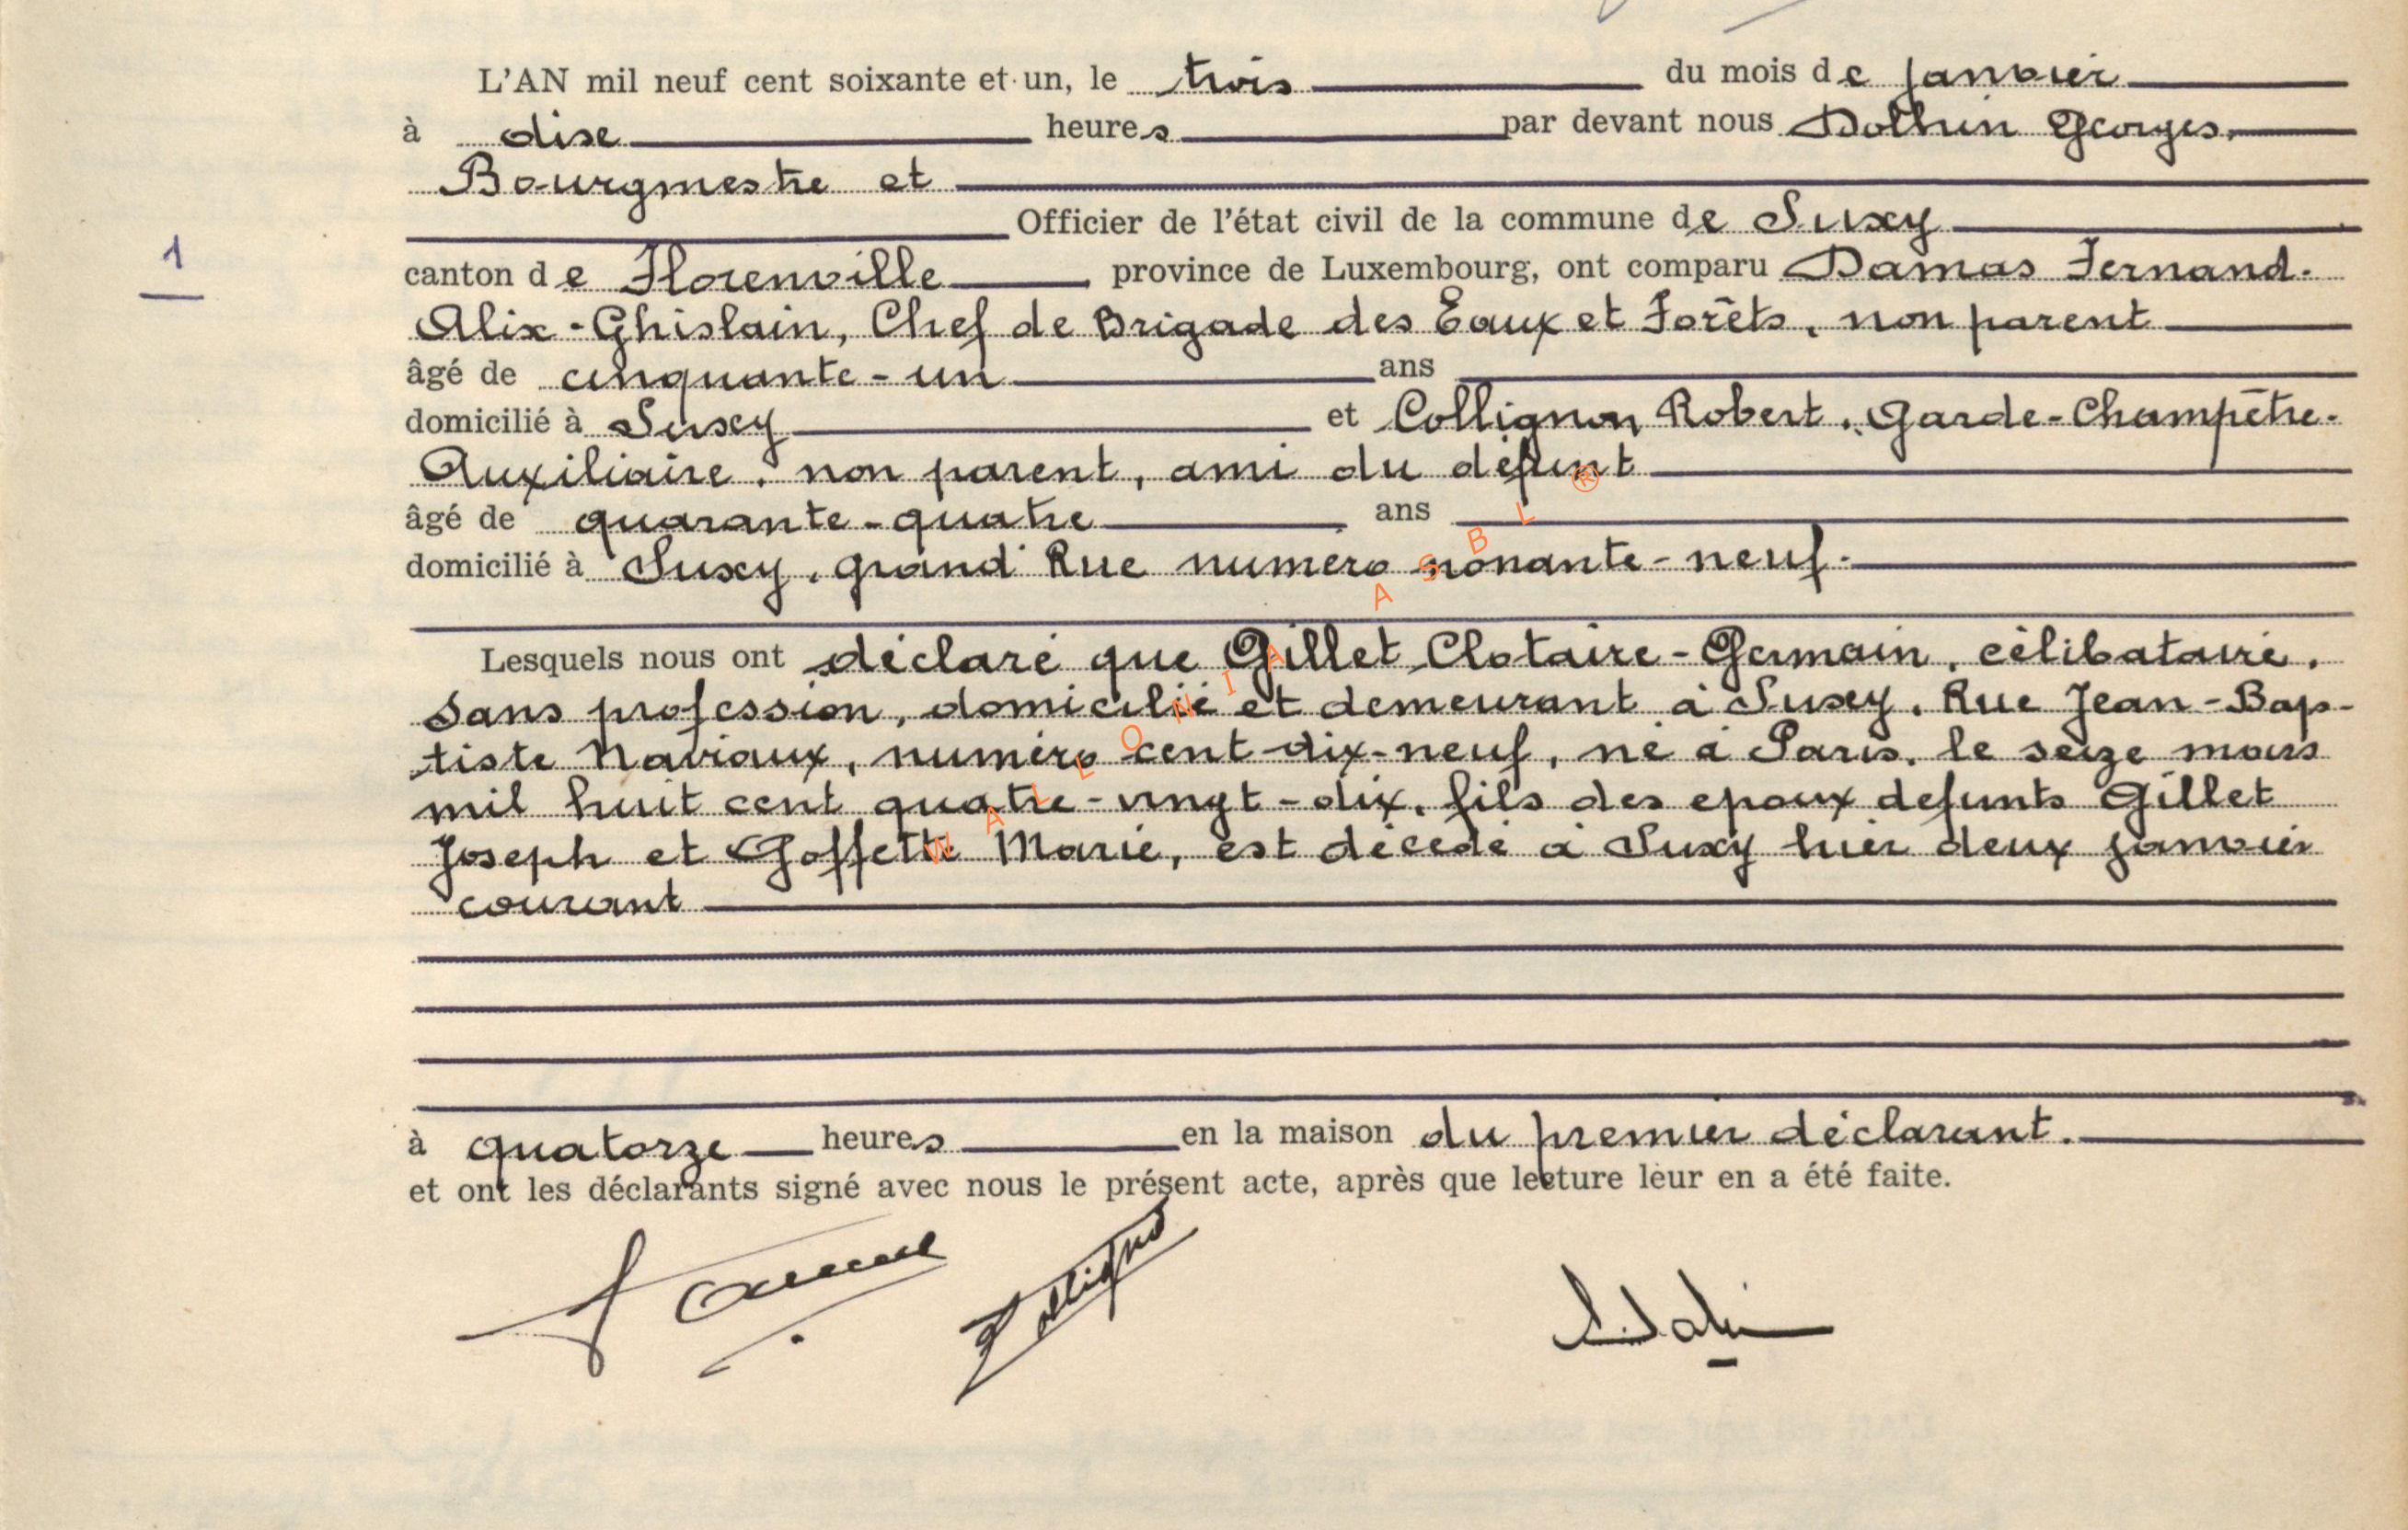 L'AN mil neuf cent soixante et un, le trois du mois de janvier
à dixe heures par devant nous Georges.
Bourgmestre et
Officier de l'état civil de la commune de Suxy
1
canton de Florenville province de Luxembourg, ont comparu Damas Fernand.
Alix-Ghislain, Chef de Brigade des Eaux et Forêts, non parent
âgé de cinquante-un ans
domicilié à Suxy et Collignon Robert, Garde-Champêtre-
Auxiliaire, non parent, ami du défunt
âgé de quarante-quatre ans
domicilié à Suxy, grand Rue numéro nonante-neuf.
Lesquels nous ont déclaré que Gillet Clotaire-Germain, célibataire,
sans profession, domicilié et demeurant à Suxy, Rue Jean-Bap-
tiste Naviaux, numéro cent-dix-neuf, né à Paris, le seize mars
mil huit cent quatre-vingt-dix, fils des epoux defunts Gillet
Joseph et Goffette Marie, est décédé à Suxy hier deux janvier
courant
à quatorze heures en la maison du premier déclarant.
et ont les déclarants signé avec nous le présent acte, après que lecture leur en a été faite.
Collignon
WALLONIA ASBL ®